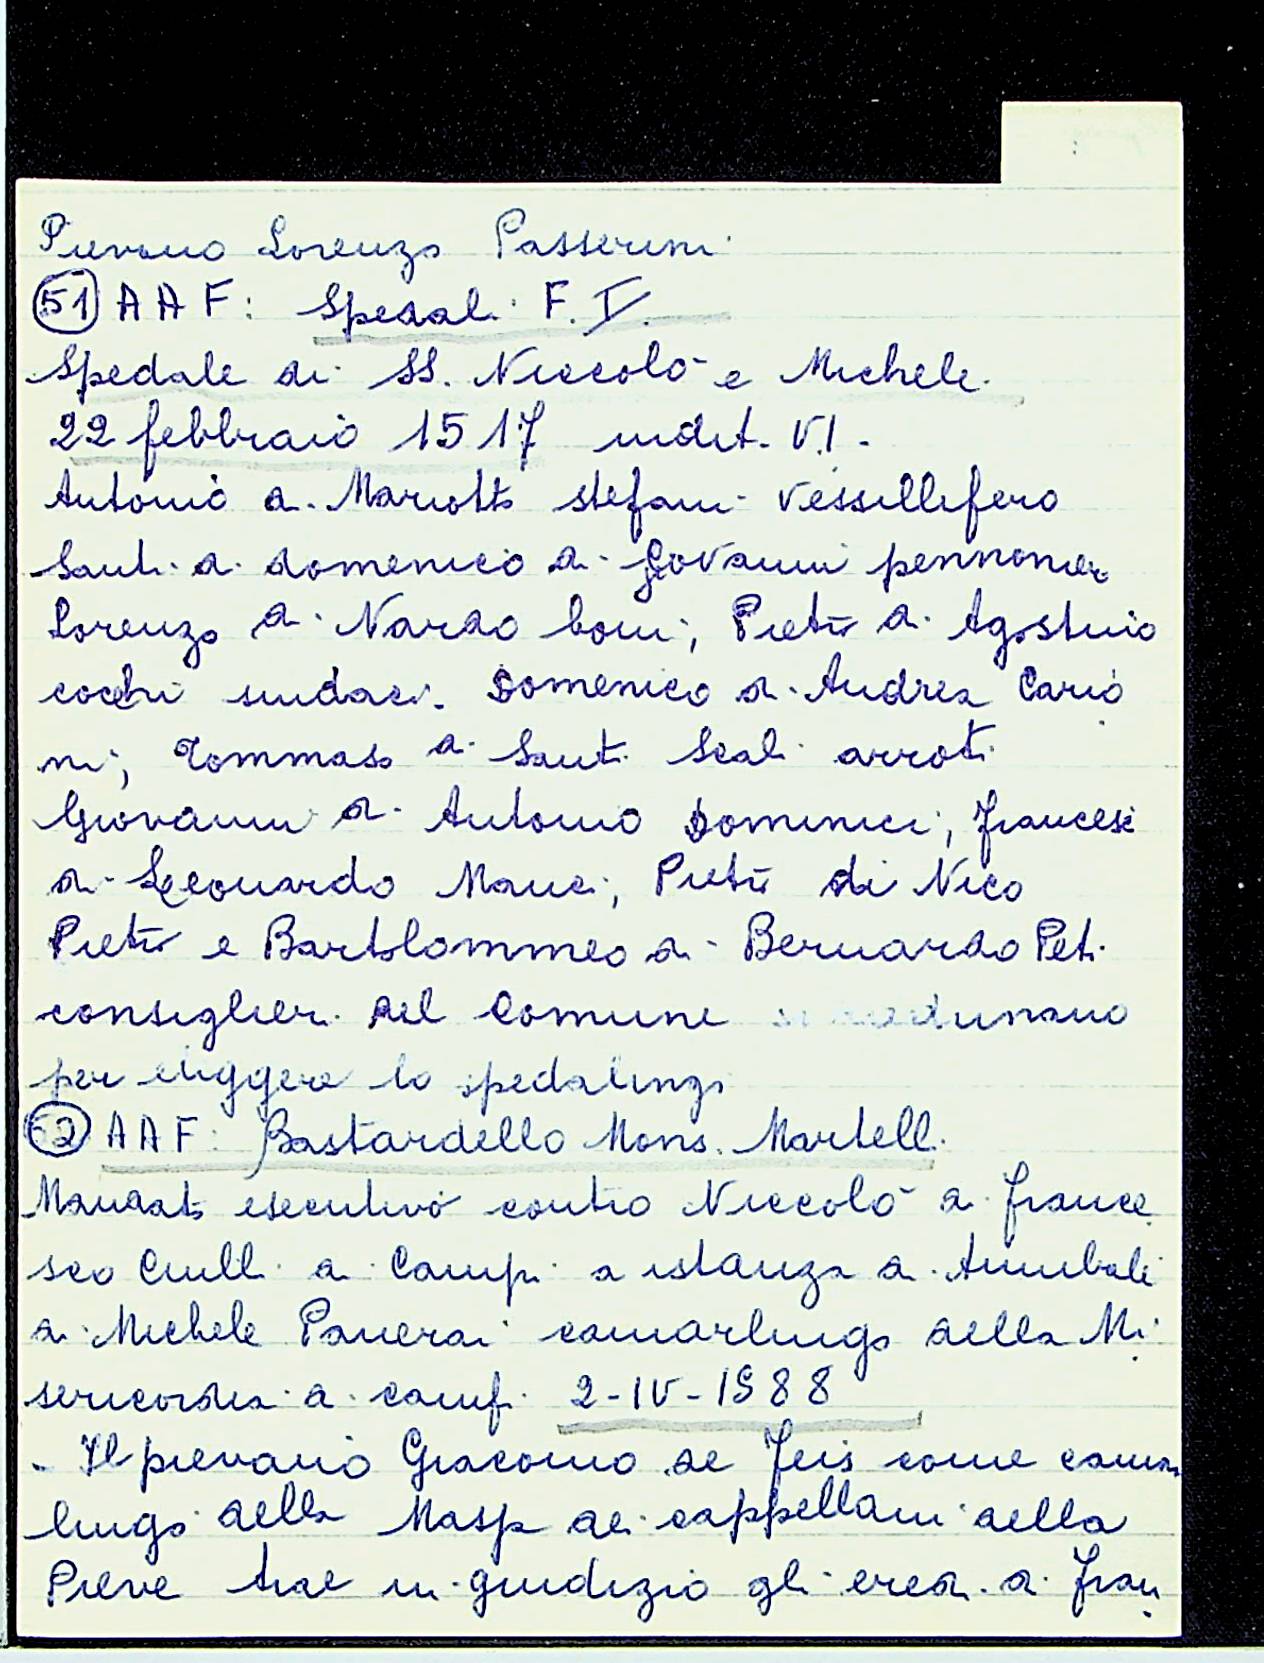 Pievano Lorenzo Passerini
51 AAF: Spedali F. V.
Spedale di SS. Niccolò e Michele.
22 febbraio 1517 indit. VI.
Antonio di Mariotto stefani vessillifero
Santi di domenico di giovanni pennonier
Lorenzo di Nardo boni, Pietro di Agostino
cocchi sindaci. Domenico di Andrea Cario
ni, Tommaso di Santi Scali arroti
Giovanni di Antonio Dominici, francesc
di Leonardo Manci, Pietro di Nico
Pietro e Bartolommeo di Bernardo Peti
consiglieri del Comune si radunano
per eliggere lo spedalingo
52 AAF: Bastardello Mons. Martelli.
Mandato esecutivo contro Niccolò di france
sco Ciulli di Campi a istanza di Annibali
di Michele Panerai camarlingo della Mi
sericordia di campi 2-IV-1588
- Il pievano Giacomo de come camar
lingo della Massa dei cappellani della
Pieve trae in giudizio gli eredi di fran